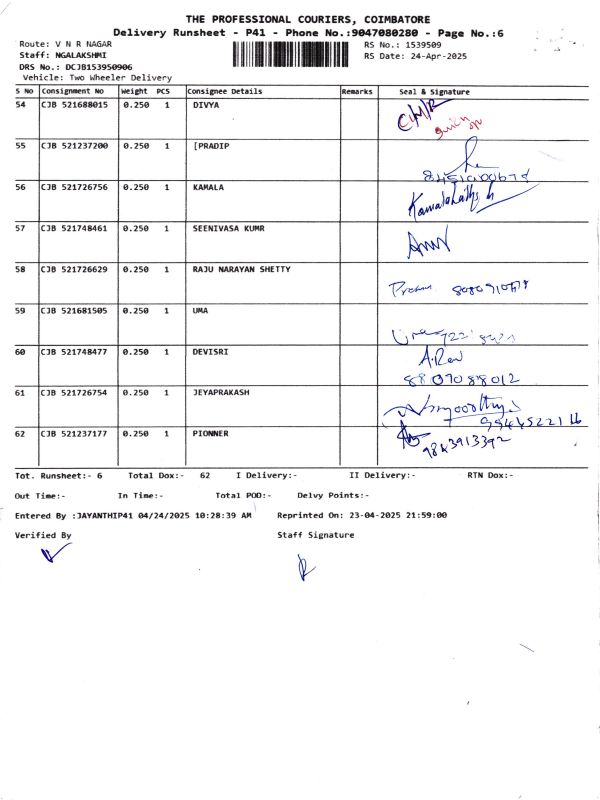 THE PROFESSIONAL COURIERS, COIMBATORE
Delivery Runsheet - P41 - Phone No.:9047080280 - Page No.:6
Route: V N R NAGAR RS No.: 1539509
Staff: NGALAKSHMI RS Date: 24-Apr-2025
DRS No.: DCJB153950906
Vehicle: Two Wheeler Delivery
S No Consignment No Weight PCS Consignee Details Remarks Seal & Signature
54 CJB 521688015 0.250 1 DIVYA
55 CJB 521237200 0.250 1 [PRADIP
56 CJB 521726756 0.250 1 KAMALA
57 CJB 521748461 0.250 1 SEENIVASA KUMR
58 CJB 521726629 0.250 1 RAJU NARAYAN SHETTY
59 CJB 521681505 0.250 1 UMA
60 CJB 521748477 0.250 1 DEVISRI
8807088012
61 CJB 521726754 0.250 1 JEYAPRAKASH
62 CJB 521237177 0.250 1 PIONNER
9843913392
Tot. Runsheet:- 6 Total Dox:- 62 I Delivery:- II Delivery:- RTN Dox:-
Out Time:- In Time:- Total POD:- Delvy Points:-
Entered By :JAYANTHIP41 04/24/2025 10:28:39 AM Reprinted On: 23-04-2025 21:59:00
Verified By Staff Signature